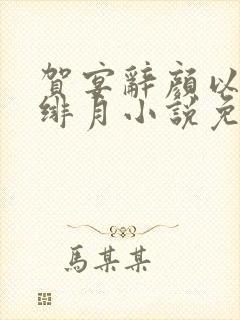 賀宴辭顏以
緋月小說免
馬某某